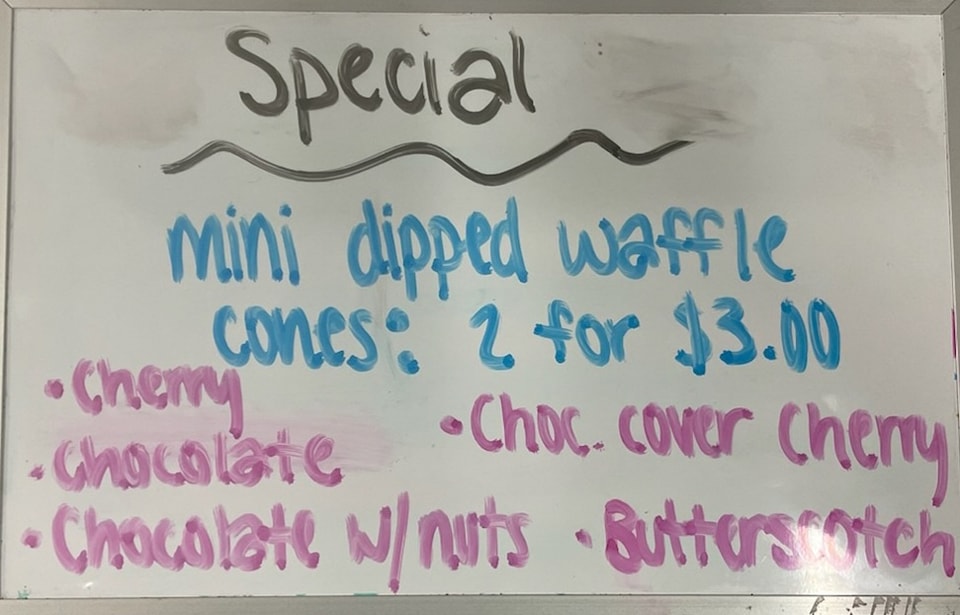 Special
mini dipped waffle
cones: 2 for $3.00
• Cherry
• Chocolate
• Chocolate w/nuts
• Choc. cover Cherry
• Butterscotch